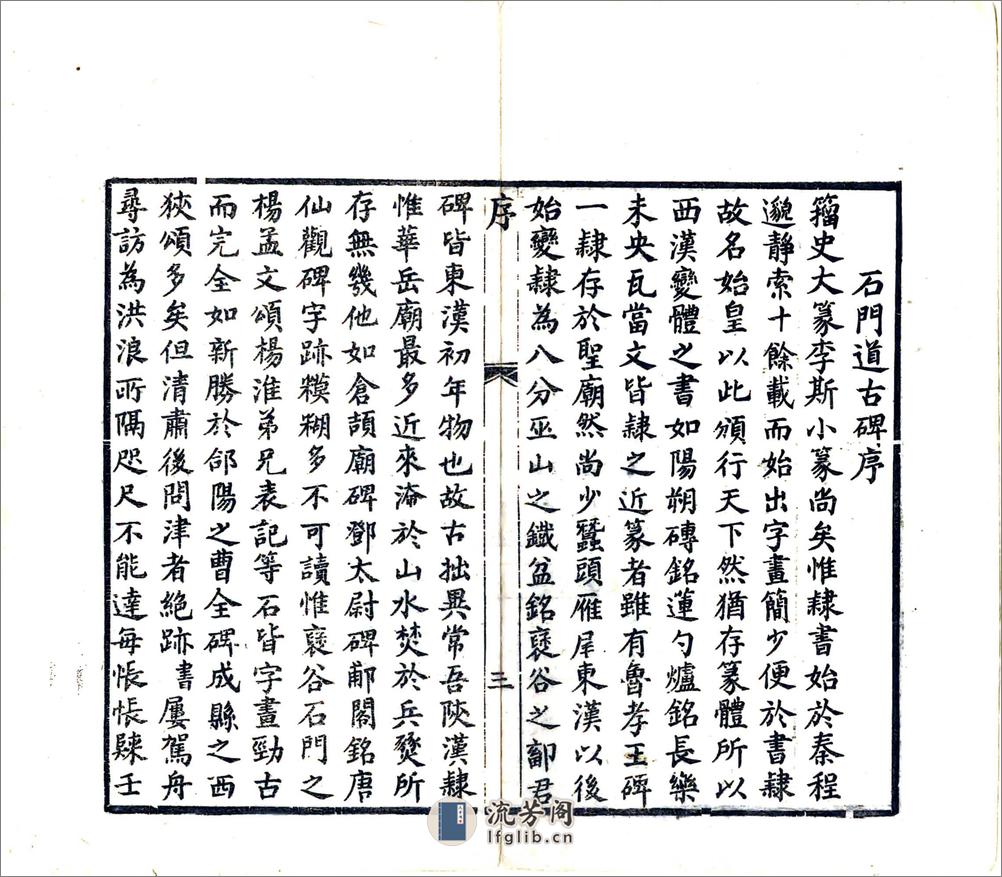 石門道古碑序
籀史大篆李斯小篆尚矣惟隸書始於秦程
邈靜索十餘載而始出字畫簡少便於書隸
故名始皇以此頒行天下然猶存篆體所以
西漢變體之書如陽朔磚銘蓮勺爐銘長樂
未央瓦當文皆隸之近篆者雖有魯孝王碑
一隸存於聖廟然尚少蠶頭雁尾東漢以後
始變隸為八分巫山之鐵盆銘褒谷之鄐君
序
三
碑皆東漢初年物也故古拙異常吾陝漢隸
惟華岳廟最多近來淹於山水焚於兵燹所
存無幾他如倉頡廟碑鄧太尉碑郙閣銘唐
仙觀碑字跡糢糊多不可讀惟褒谷石門之
楊孟文頌楊淮弟兄表記等石皆字畫勁古
而完全如新勝於郃陽之曹全碑成縣之西
狹頌多矣但清肅後問津者絕跡書屢駕舟
尋訪為洪浪所隔咫尺不能達每悵悵疎壬
流芳阁
lfglib.cn